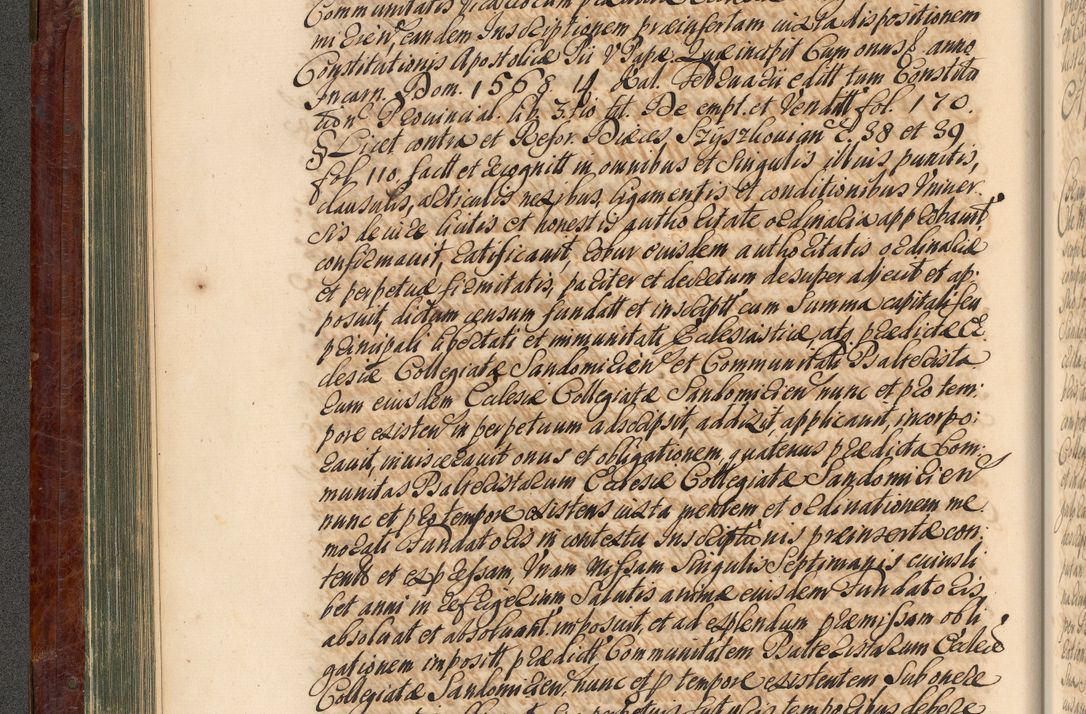 mirien, eandem Inscriptionem præinsertam iuxta dispositionem
Constitutionis Apostolicæ Pii V Papæ. Quæ incipit Cum onus §. anno
Incarn. Dom. 1568 14 Kal. Februarii editt tam Constitu
tion Provincial. lib. 3tio tit. De empt. et Venditt fol. 170.
§ Licet contra et Refor. Diæces Szyszkovian C. 38 et 39
fol 110 factt et recognitt in omnibus et singulis illius punctis,
clausulis, articulis nexibus, ligamentis et conditionibus Univer
sis de iure licitis et honestis authoritate ordinaria approbavit,
confirmavit, ratificavit, robur eiusdem authoritatis ordinariæ
et perpetuæ firmitatis, pariter et decretum desuper adjecit et ap:
posuit, dictum censum fundatt et inscriptt cum Summa capitali seu
principali libertati et immunitati Ecclesiasticæ, atq prædictæ Ec
clesiæ Collegiatæ Sandomirien et Communitati Psalterista
rum eiusdem Ecclesiæ Collegiatæ Sandomirien nunc et pro tem:
pore existen in perpetuum adscripsit, addixit applicavit, incorpo:
ravit, invisceravit onus et obligationem, quatenus prædicta Com:
munitas Psalteristarum Ecclesiæ Collegiatæ Sandomirien
nunc et pro tempore existens iuxta mentem et ordinationem me
morati Fundatoris in contextu Inscriptionis præinsertæ con:
tentt et expressam, Unam Missam Singulis Septimanis cuiusli
bet anni in refrigerium Salutis animæ eiusdem Fundatoris,
absolvat et absolvant, imposuit, et ad explendum præmissam obli
gationem impositt, prædictt Communitatem Psalteristarum Eccleiæ
Collegiatæ Sandomirien, nunc et p tempore existentem Sub onere